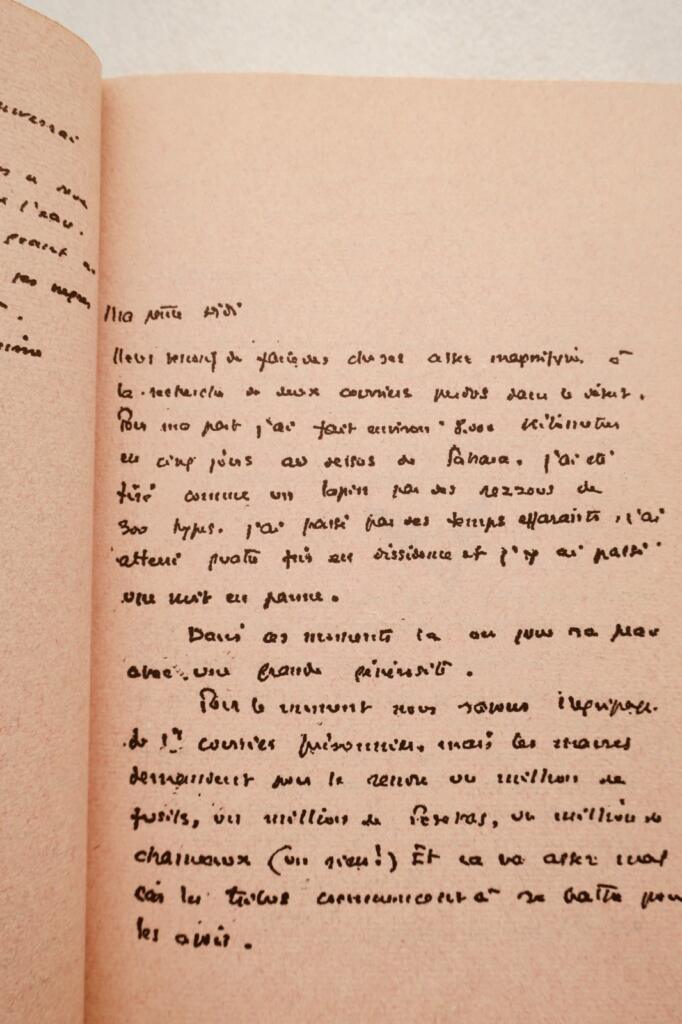 uverrai
l'eau.
Ma petite Didi
Nous venons de faire des choses assez magnifiques à
la recherche de deux courriers perdus dans le désert.
Pour ma part j'ai fait environ 8.000 kilomètres
en cinq jours au dessus du Sahara. J'ai été
tiré comme un lapin par des rezzous de
300 types. J'ai passé par des temps effarants, j'ai
atterri quatre fois en dissidence et j'y ai passé
une nuit en panne.
Dans ces moments là on joue sa peau
avec une grande générosité.
Pour le moment nous savons l'équipage
du 1er courrier prisonnier. mais les maures
demandent pour le rendre un million de
fusils, un million de Pesetas, un million de
chameaux (un rien!) Et ça va assez mal
car les tribus commencent à se battre pour
les avoir.